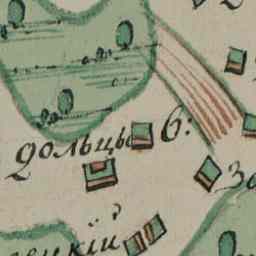 дольцы 6:
За
ецкій